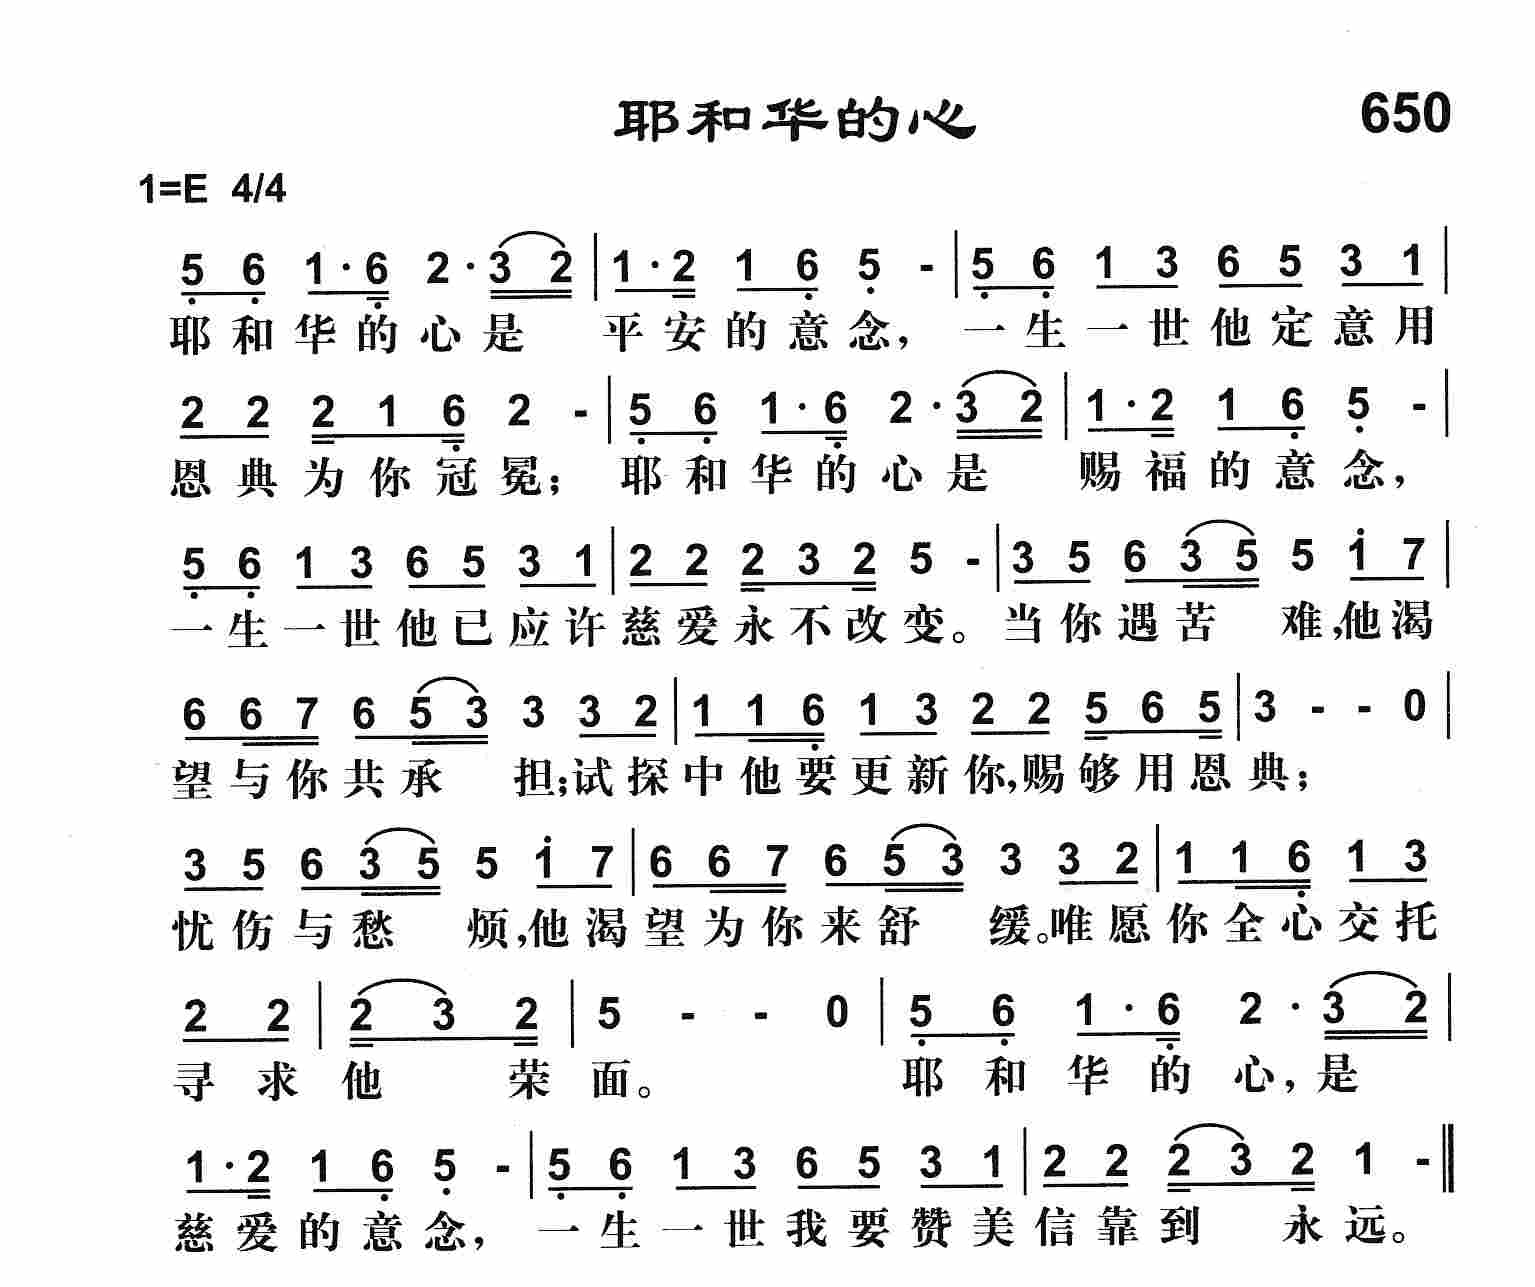 耶和华的心 650
1=E 4/4
5 6 1·6 2·3 2 | 1·2 1 6 5 - | 5 6 1 3 6 5 3 1 |
耶和华的心是 平安的意念，一生一世他定意用
2 2 2 1 6 2 - | 5 6 1·6 2·3 2 | 1·2 1 6 5 - |
恩典为你冠冕；耶和华的心是 赐福的意念，
5 6 1 3 6 5 3 1 | 2 2 2 3 2 5 - | 3 5 6 3 5 5 1 7 |
一生一世他已应许慈爱永不改变。当你遇苦 难，他渴
6 6 7 6 5 3 3 3 2 | 1 1 6 1 3 2 2 5 6 5 | 3 - - 0 |
望与你共承 担；试探中他要更新你，赐够用恩典；
3 5 6 3 5 5 1 7 | 6 6 7 6 5 3 3 3 2 | 1 1 6 1 3
忧伤与愁 烦，他渴望为你来舒 缓。唯愿你全心交托
2 2 | 2 3 2 | 5 - - 0 | 5 6 1·6 2·3 2 |
寻求他 荣面。 耶和华的心，是
1·2 1 6 5 - | 5 6 1 3 6 5 3 1 | 2 2 2 3 2 1 - ‖
慈爱的意念，一生一世我要赞美信靠到 永远。